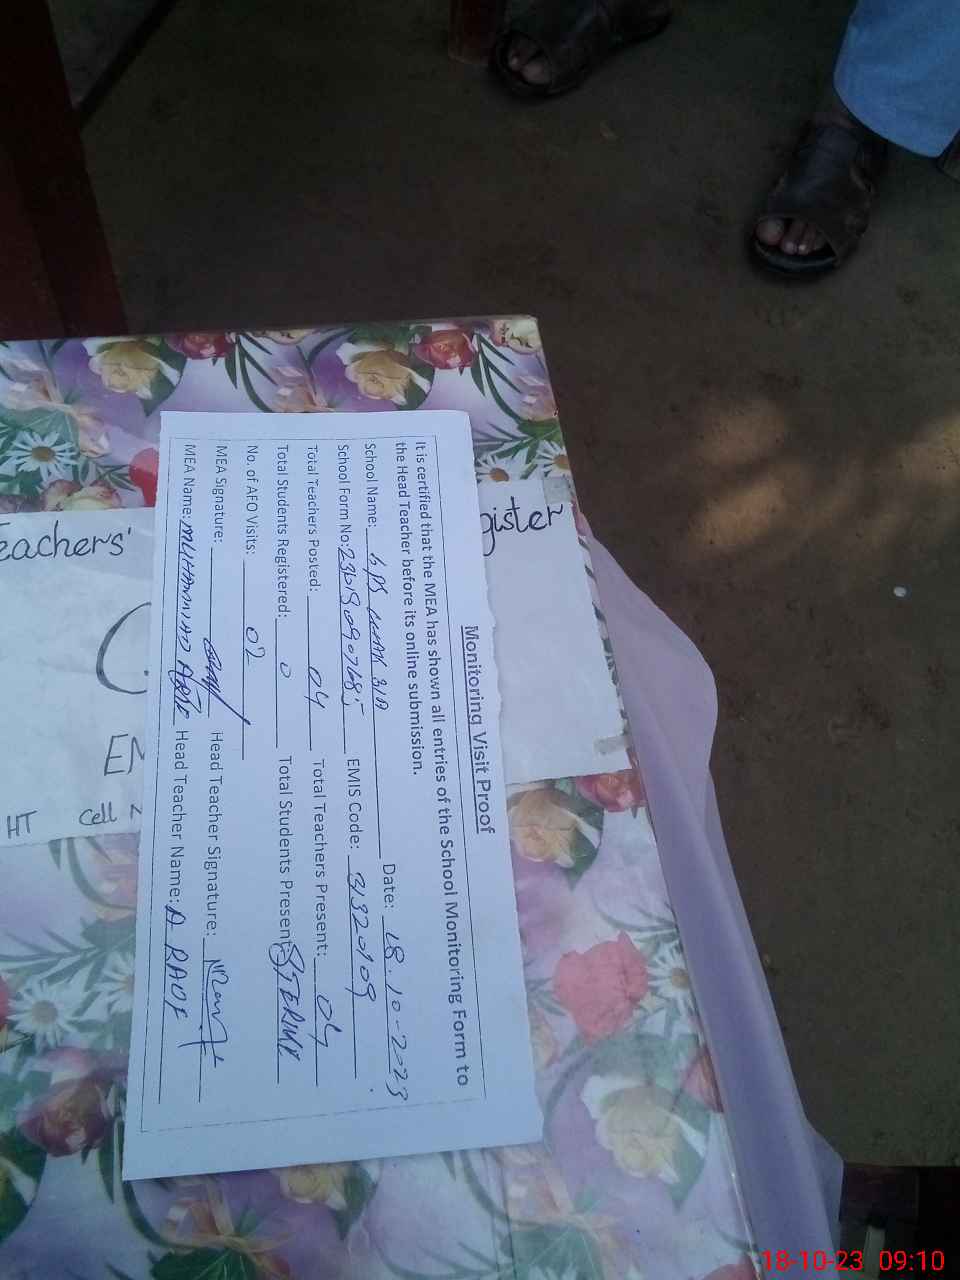 Monitoring Visit Proof
It is certified that the MEA has shown all entries of the School Monitoring Form to
the Head Teacher before its online submission.
School Name: GPS CHAK 31A Date: 18.10-2023
School Form No: EMIS Code: 31320109
Total Teachers Posted: 04 Total Teachers Present: 04
Total Students Registered: 0 Total Students Present:
No. of AFO Visits: 02
MEA Signature: Head Teacher Signature:
MEA Name: MUHAMMAD Head Teacher Name: A RAUF
eachers' gister
EM
HT Cell N
18-10-23 09:10